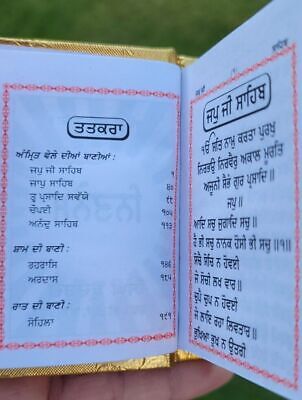 ਤਤਕਰਾ
ਅੰਮ੍ਰਿਤ ਵੇਲੇ ਦੀਆਂ ਬਾਣੀਆਂ :
ਜਪੁ ਜੀ ਸਾਹਿਬ ੧
ਜਾਪੁ ਸਾਹਿਬ ੪੦
ਤ੍ਵ ਪ੍ਰਸਾਦਿ ਸਵੱਯੇ
ਚੌਪਈ ੧੦੨
ਅਨੰਦੁ ਸਾਹਿਬ ੧੧੩
ਸ਼ਾਮ ਦੀ ਬਾਣੀ :
ਰਹਰਾਸਿ ੧੪੬
ਅਰਦਾਸ ੧੬੫
ਰਾਤ ਦੀ ਬਾਣੀ :
ਸੋਹਿਲਾ ੧੮੧
ਜਪੁ ਜੀ ਸਾਹਿਬ
ੴ ਸਤਿ ਨਾਮੁ ਕਰਤਾ ਪੁਰਖੁ
ਨਿਰਭਉ ਨਿਰਵੈਰੁ ਅਕਾਲ ਮੂਰਤਿ
ਅਜੂਨੀ ਸੈਭੰ ਗੁਰ ਪ੍ਰਸਾਦਿ॥
ਜਪੁ॥
ਆਦਿ ਸਚੁ ਜੁਗਾਦਿ ਸਚੁ॥
ਹੈ ਭੀ ਸਚੁ ਨਾਨਕ ਹੋਸੀ ਭੀ ਸਚੁ॥੧॥
ਸੋਚੈ ਸੋਚਿ ਨ ਹੋਵਈ
ਜੇ ਸੋਚੀ ਲਖ ਵਾਰ॥
ਚੁਪੈ ਚੁਪ ਨ ਹੋਵਈ
ਜੇ ਲਾਇ ਰਹਾ ਲਿਵਤਾਰ॥
ਭੁਖਿਆ ਭੁਖ ਨ ਉਤਰੀ